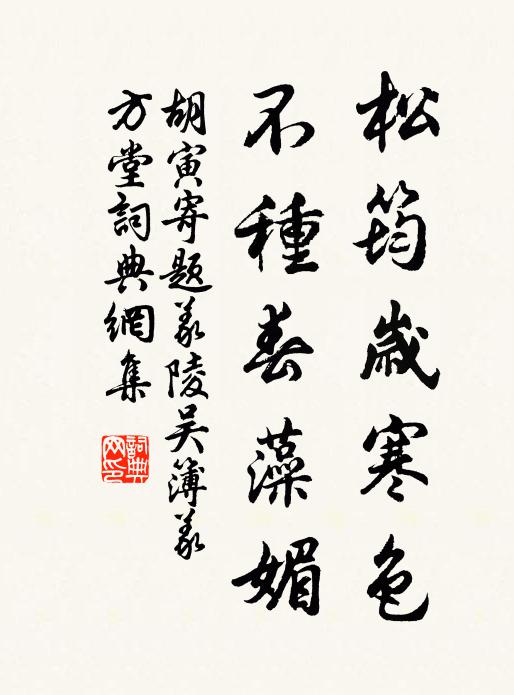 松筠歲寒色
不種春藻媚
胡寅寄題義陵吴簿義
方堂詞典網集
詞典网印